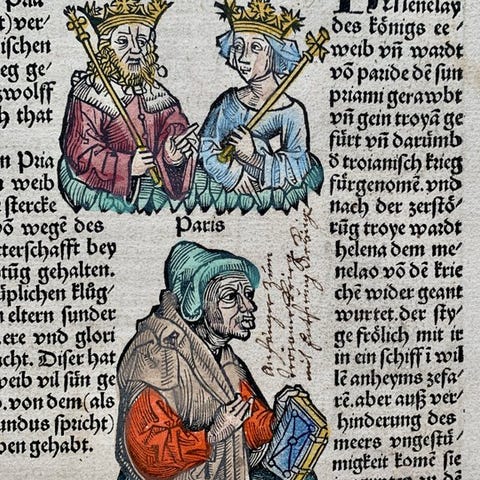 Pria
t) ver⸗
ischen
eg ge⸗
zwolff
h that
n Pria
n weib
e stercke
vō wegē des
tterschafft bey
tūg gehalten.
üplichen klůg⸗
n eltern sunder
ere vnd glori
cht. Diser hat
eib vil sün ge
o. von dem (als
undus spricht)
ben gehabt.
Paris
Menelay
des königs ee⸗
weib vn̄ wardt
vō paride dē sun
priami gerawbt
vn̄ gein troyā ge
fürt vn̄ darūmb
d̓ troianisch krieg
fürgenomē. vnd
nach der zerstö⸗
rūg troye wardt
helena dem me⸗
nelao vō dē krie
chē wider geant
wurtet. der sty⸗
ge frölich mit ir
in ein schiff ī wil
lē anheyms zefa⸗
rē. aber auß ver⸗
hinderung des
meers vngestü⸗
migkeit komē sie